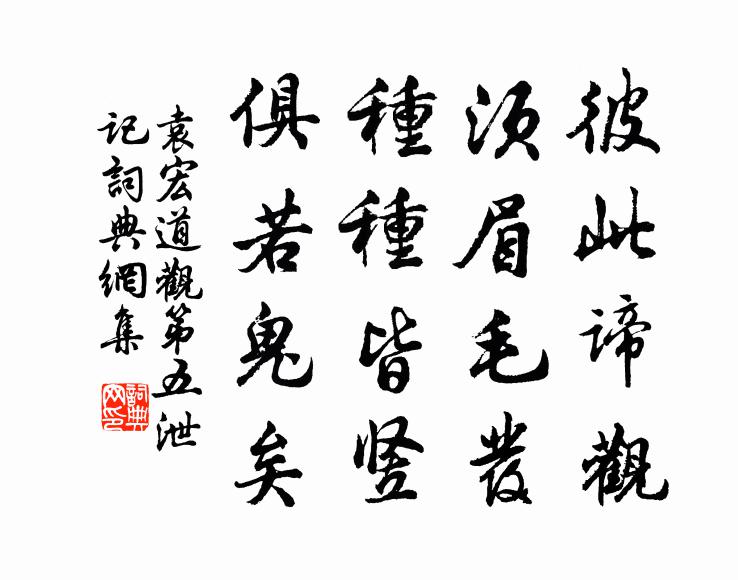 彼此諦觀
須眉毛發
種種皆竖
俱若鬼矣
袁宏道觀第五泄
记詞典網集
詞典网印